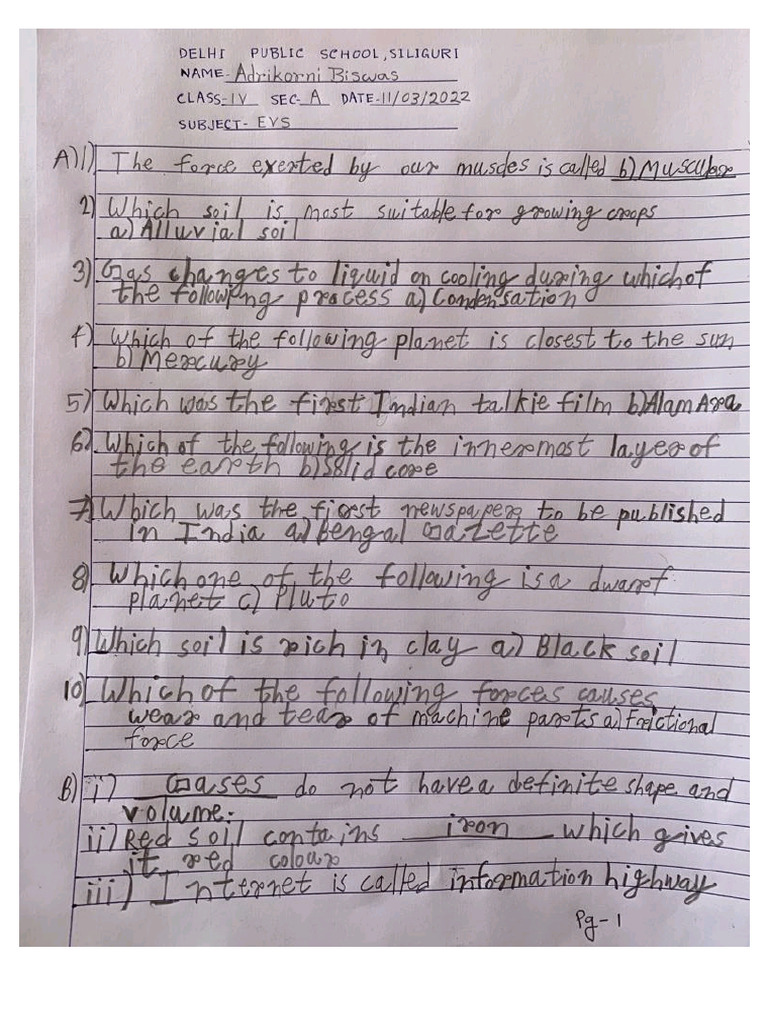 DELHI PUBLIC SCHOOL, SILIGURI
NAME- Adrikorni Biswas
CLASS- IV SEC- A DATE-11/03/2022
SUBJECT- EVS
A) 1) The force exerted by our muscles is called b) Muscular
2) Which soil is most suitable for growing crops
a) Alluvial soil
3) Gas changes to liquid on cooling during which of
the following process a) Condensation
4) Which of the following planet is closest to the sun
b) Mercury
5) Which was the first Indian talkie film b) Alam Ara
6) Which of the following is the innermost layer of
the earth b) Solid core
7) Which was the fiorst newspapers to be published
in India a) Bengal Gazette
8) Which one of the following is a dwarf
planet c) Pluto
9) Which soil is rich in clay a) Black soil
10) Which of the following forces causes
wear and tear of machine parts a) Frictional
force
B) i) Gases do not have a definite shape and
volume.
ii) Red soil contains iron which gives
it red colour
iii) Internet is called information highway
Pg-1